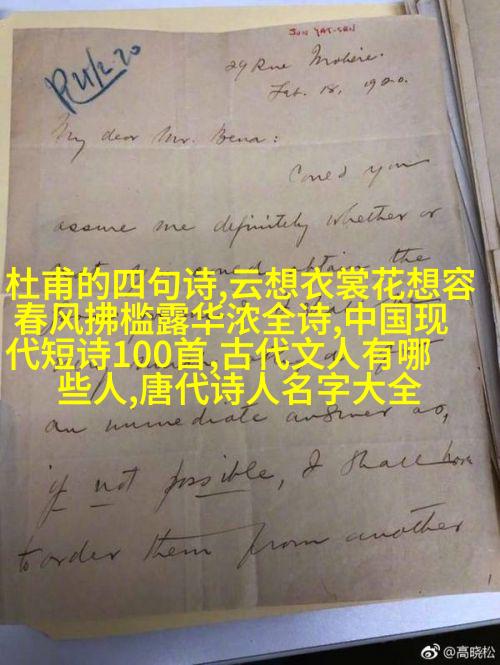 SUN YAT-SEN
R 21/2.20
29 Rue Molière.
Feb. 18, 1920.
My dear Mr. Bena:
Could you
assure me definitely whether or
the
杜甫的四句诗,云想衣裳花想容
春风拂槛露华浓全诗,中国现
代短诗100首,古代文人有哪
些人,唐代诗人名字大全
an immediate answer as,
if not possible, I shall have
to order them from another
@高晓松